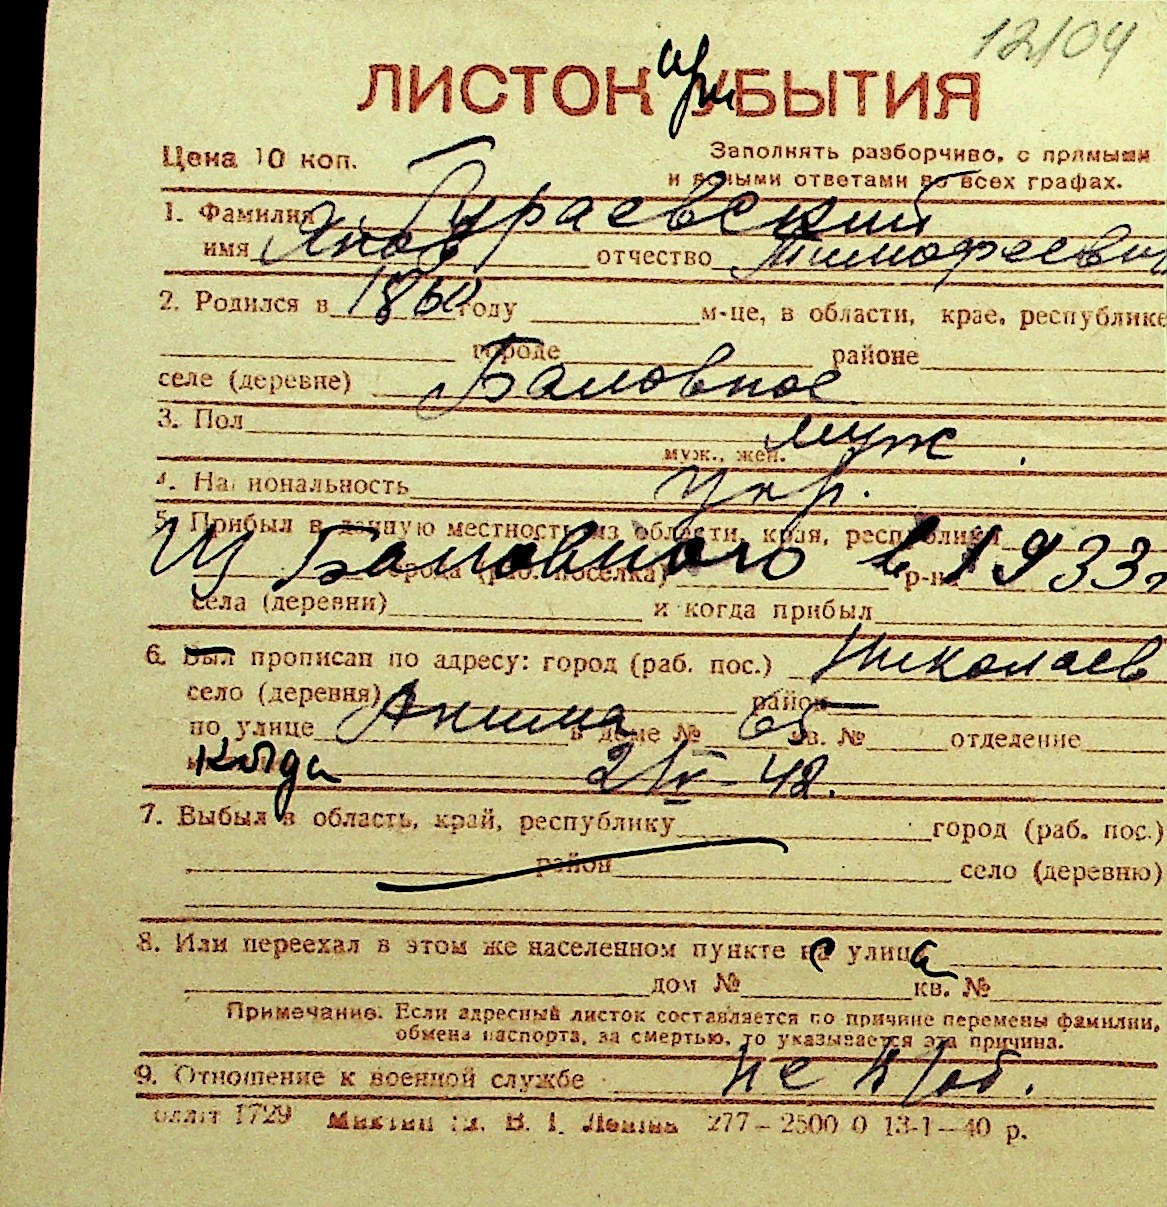 12/04
ЛИСТОК при УБЫТИЯ
Цена 10 коп.
Заполнять разборчиво, с прямыми
и ясными ответами во всех графах.
1. Фамилия Гураевский
имя Яков отчество Тимофеевич
2. Родился в 1860 году м-це, в области, крае, республике
городе районе
селе (деревне) Баловное
3. Пол муж
муж., жен.
4. Национальность укр.
5. Прибыл в данную местность из области, края, республики
Из Баловного в 1933г
города (раб. поселка) р-на
села (деревни) и когда прибыл
6. Был прописан по адресу: город (раб. пос.) Николаев
село (деревня) район
по улице Акима в доме № 65 кв. № отделение
Когда 2/IV-42.
7. Выбыл в область, край, республику город (раб. пос.)
район село (деревню)
8. Или переехал в этом же населенном пункте с улица
дом № кв. №
Примечание. Если адресный листок составляется по причине перемены фамилии,
обмена паспорта, за смертью, то указывается эта причина.
9. Отношение к военной службе не в/об.
1729 В. І. Леніна 277—2500 0 13-1—40 р.